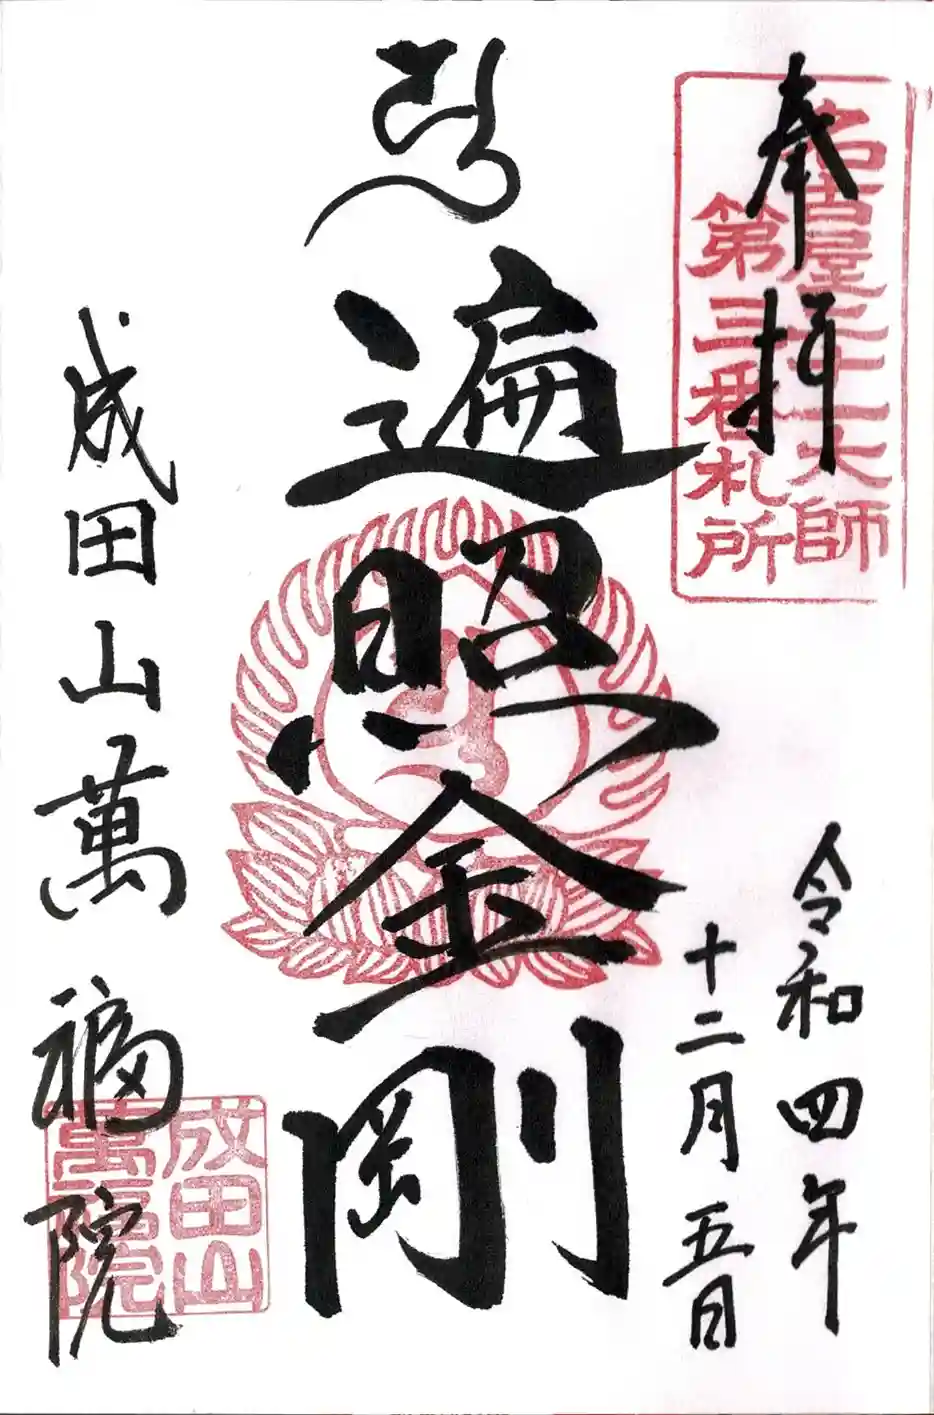 奉拝
名古屋二十一大師
第三番札所
令和四年
十二月五日
遍照金剛
成田山萬福院
成田山
萬福院